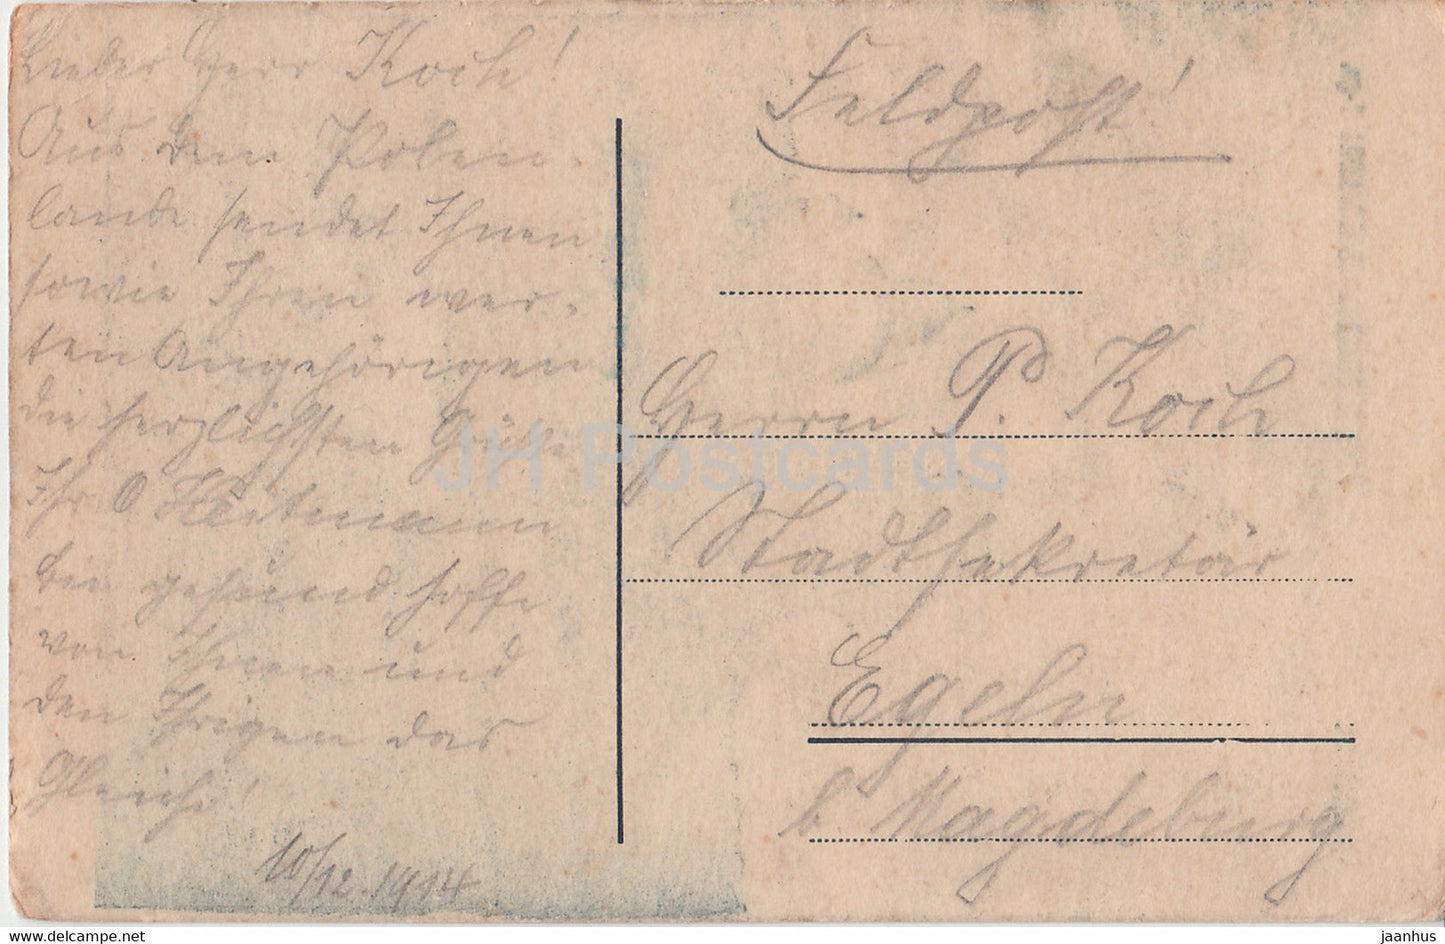 Lieber Herr Koch!
Aus dem Polen-
lande sendet Ihnen
sowie Ihren wer-
ten Angehörigen
die herzlichsten Grüße
Ihr O Heitmann
bin gesund hoffe
von Ihnen und
den Ihrigen das
Gleiche!
10/12.1914
Feldpost!
Herrn P. Koch
Stadtsekretär
Egeln
b. Magdeburg
JH Postcards
jaanhus
www.delcampe.net